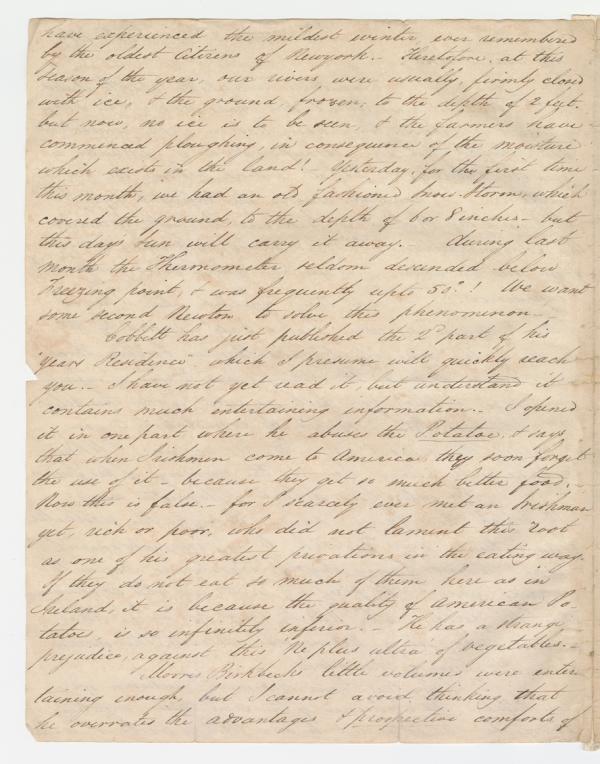 have experienced the mildest winter ever remembered
by the oldest Citizens of Newyork.- Heretofore, at this
season of the year, our rivers were usually, firmly closed
with ice, & the ground, frozen, to the depth of 2 feet.
but now, no ice is to be seen, & the farmers have
commenced ploughing, in consequence of the moisture
which exists in the land! Yesterday, for the first time
this month, we had an old fashioned Snow-Storm, which
covered the ground, to the depth of 6 or 8 inches- but
this days sun will carry it away.- During last
month the Thermometer seldom descended below
Freezing point, & was frequently upto 50°! We want
some second Newton to solve this phenominon-
Cobbett has just published the 2d part of his
"years Residence" which I presume will quickly reach
you.- I have not yet read it, but understand it
contains much entertaining information.- I opened
it in one part where he abuses the Potatoe, & says
that when Irishmen come to America they soon forget
the use of it - because they get so much better food.-
Now this is false.- for I scarcely ever met an Irishman
yet, rich or poor, who did not lament this root
as one of his greatest privations in the eating way.
If they do not eat so much of them here as in
Ireland, it is because the quality of American Po-
tatoe, is so infinitely inferior.- He has a strange
prejudice, against this Ne plus ultra of vegetables.-
Morris Birkbeck's little volumes were enter
taining enough, but I cannot avoid thinking that
he overrates the advantages & prospective comforts of